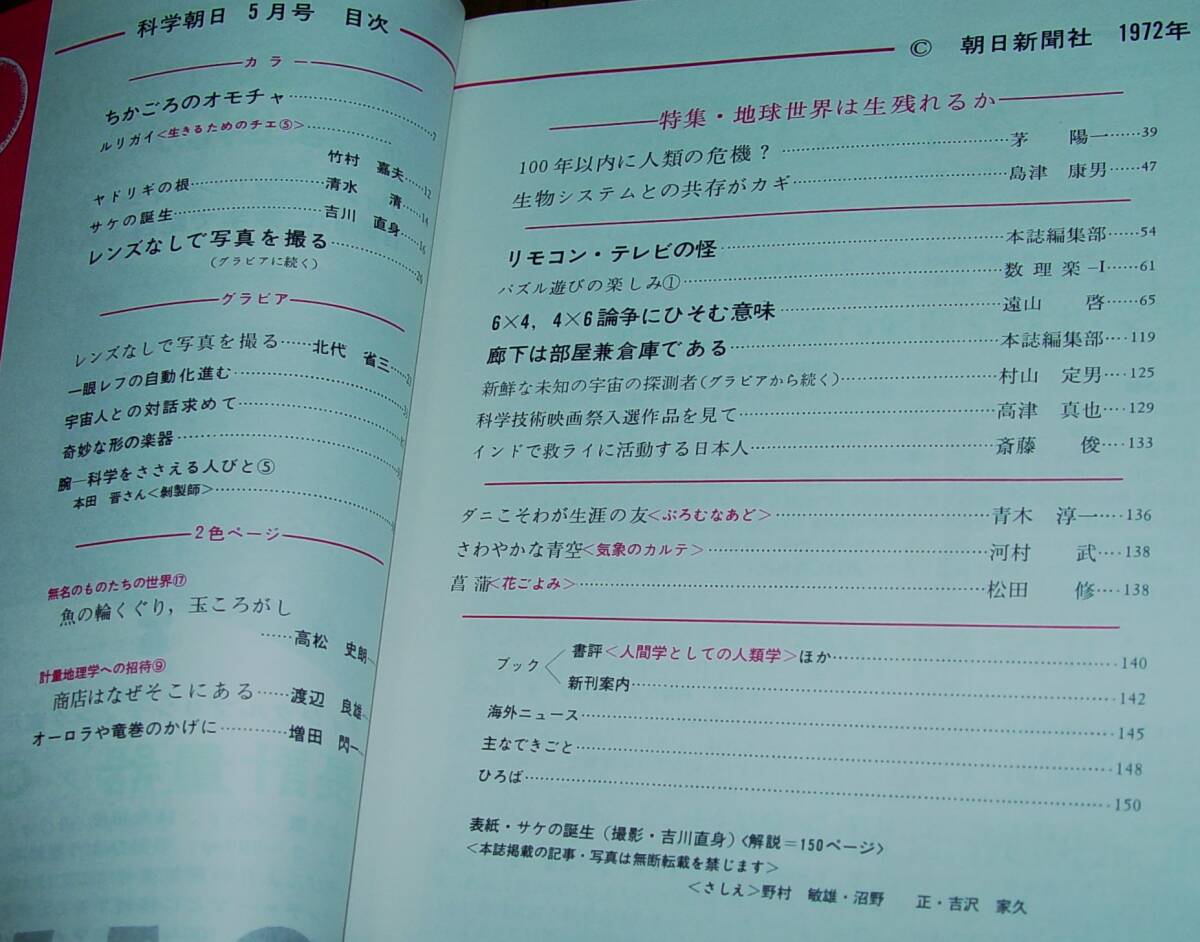 科学朝日 5月号 目次
カラー
ちかごろのオモチャ……7
ルリガイ<生きるためのチエ⑤>……
竹村 嘉夫…12
ヤドリギの根……清水 清…14
サケの誕生……吉川 直身…16
レンズなしで写真を撮る……20
(グラビアに続く)
グラビア
レンズなしで写真を撮る……北代 省三…21
一眼レフの自動化進む……
宇宙人との対話求めて……
奇妙な形の楽器……
腕―科学をささえる人びと⑤
本田 晋さん<剝製師>……
2色ページ
無名のものたちの世界⑰
魚の輪くぐり，玉ころがし
……高松 史朗
計量地理学への招待⑨
商店はなぜそこにある……渡辺 良雄
オーロラや竜巻のかげに……増田 閃一
© 朝日新聞社 1972年
特集・地球世界は生残れるか
100年以内に人類の危機？……茅 陽一……39
生物システムとの共存がカギ……島津 康男……47
リモコン・テレビの怪……本誌編集部……54
パズル遊びの楽しみ①……数理楽―I……61
6×4，4×6論争にひそむ意味……遠山 啓……65
廊下は部屋兼倉庫である……本誌編集部……119
新鮮な未知の宇宙の探測者(グラビアから続く)……村山 定男……125
科学技術映画祭入選作品を見て……高津 真也……129
インドで救ライに活動する日本人……斎藤 俊……133
ダニこそわが生涯の友<ぷろむなあど>……青木 淳一……136
さわやかな青空<気象のカルテ>……河村 武……138
菖蒲<花ごよみ>……松田 修……138
ブック
書評<人間学としての人類学>ほか……140
新刊案内……142
海外ニュース……145
主なできごと……148
ひろば……150
表紙・サケの誕生(撮影・吉川直身)<解説＝150ページ>
<本誌掲載の記事・写真は無断転載を禁じます>
<さしえ>野村 敏雄・沼野 正・吉沢 家久